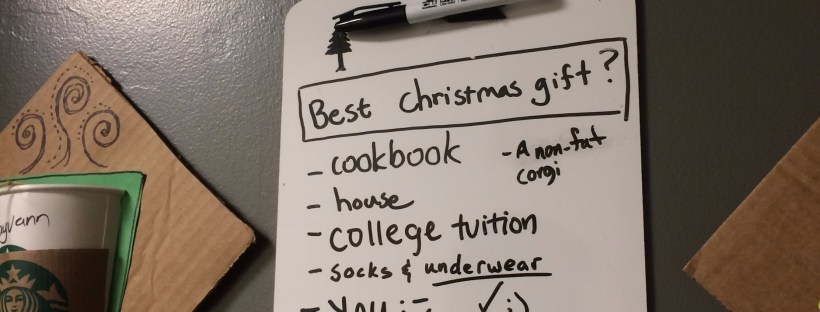 Best Christmas gift?
- cookbook
- A non-fat
corgi
- house
- college tuition
- socks & underwear
- you :-